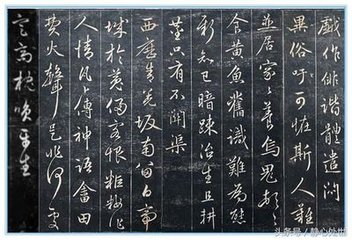 戲作俳諧體遣悶
異俗吁可怪斯人難
並居家家養烏鬼頓頓
食黃魚舊識難為態
新知已暗疎治生且耕
鑿只有不關渠
西歷青羌坂南留白帝
城於菟侵客恨粔籹作
人情瓦卜傳神語畬田
費火聲是非何處
定高枕咲浮生
头条号 / 静心处世